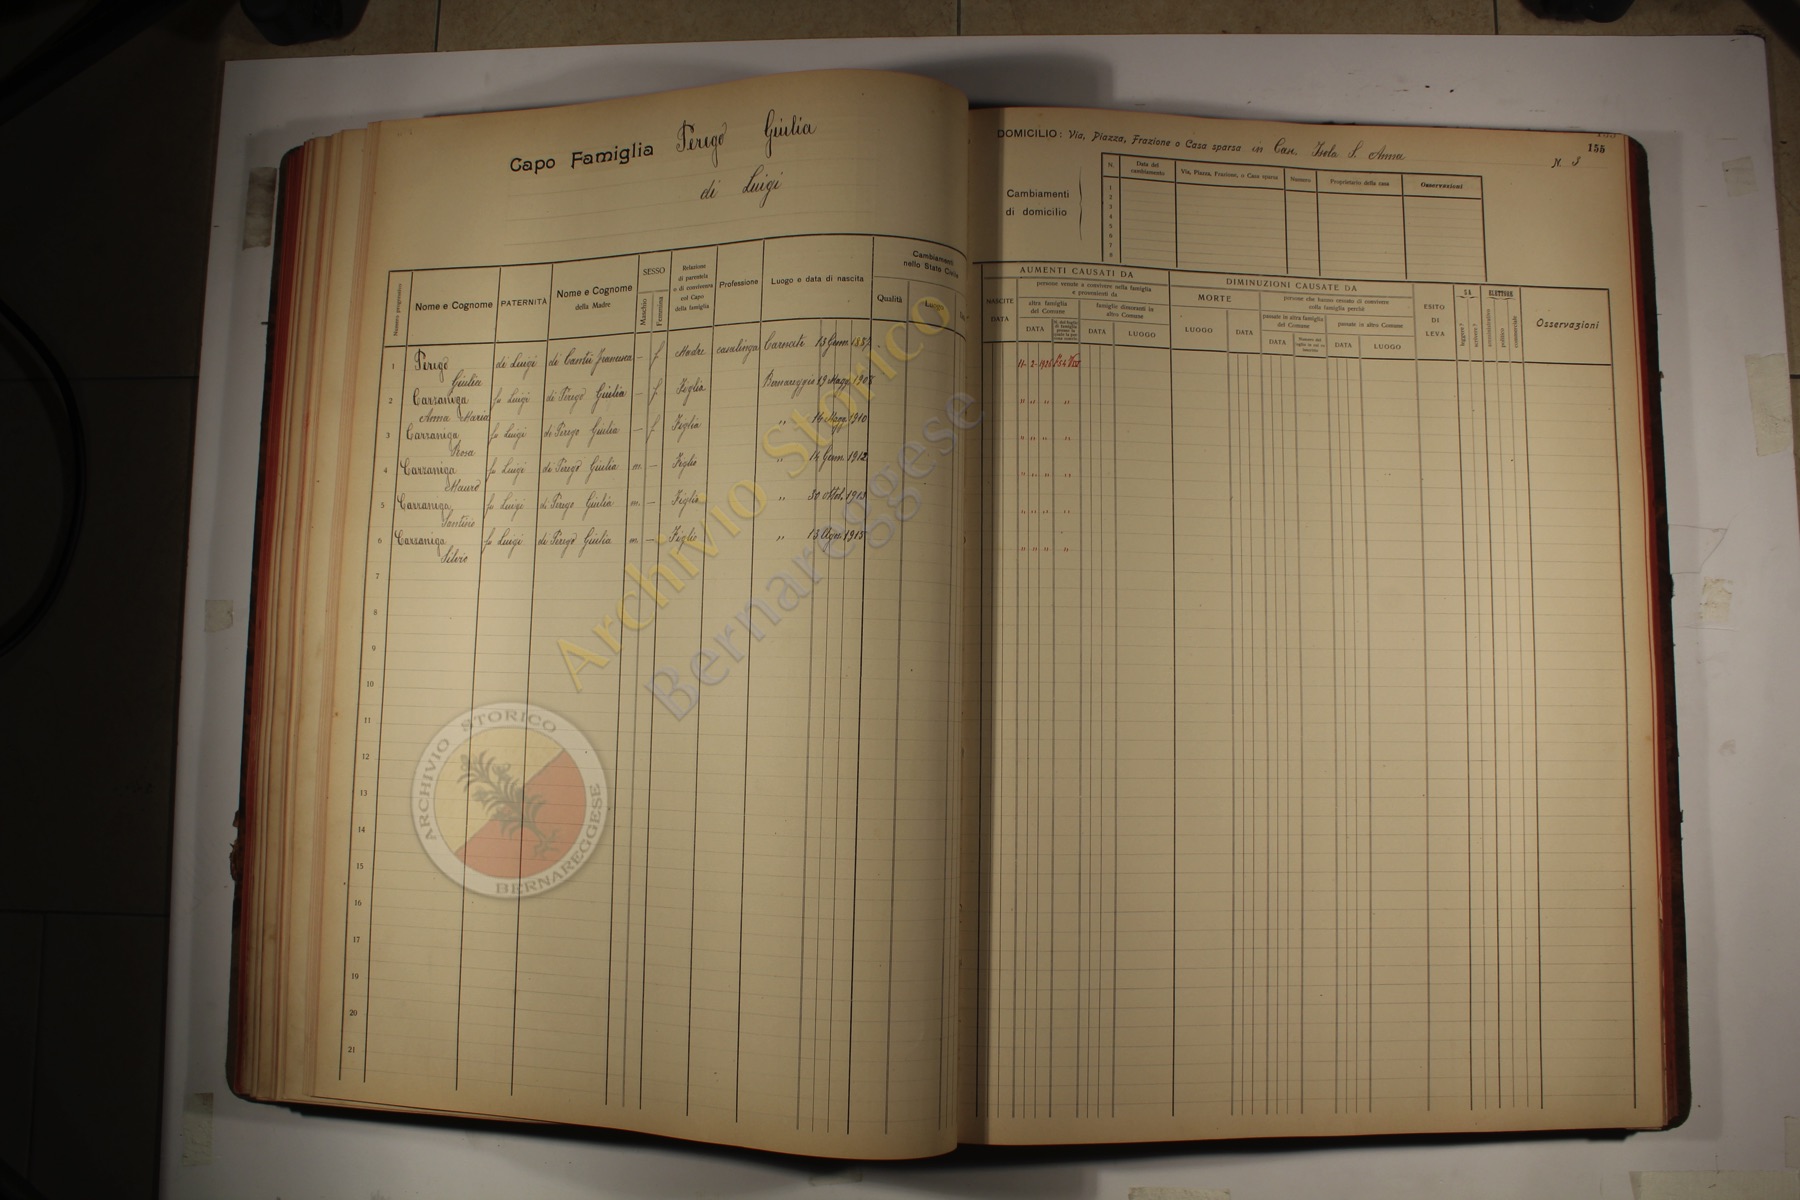 Capo Famiglia Perego Giulia
di Luigi
Numero progressivo
Nome e Cognome
PATERNITÀ
Nome e Cognome della Madre
SESSO
Maschio
Femmina
Relazione di parentela o di convivenza col Capo della famiglia
Professione
Luogo e data di nascita
Cambiamenti nello Stato Civile
Qualità
Luogo
1 Perego Giulia di Luigi di Cantù Francesca — f Madre casalinga Carnate 13 Genn.
2 Carzaniga Anna Maria fu Luigi di Perego Giulia — f Figlia Bernareggio 19 Magg. 1908
3 Carzaniga Rosa fu Luigi di Perego Giulia — f Figlia " 16 Magg. 1910
4 Carzaniga Mauro fu Luigi di Perego Giulia m. — Figlio " 14 Genn. 1912
5 Carzaniga Santino fu Luigi di Perego Giulia m. — Figlio " 30 Ott. 1913
6 Carzaniga Silvio fu Luigi di Perego Giulia m. — Figlio " 13 1915
7
8
9
10
11
12
13
14
15
16
17
18
19
20
21
DOMICILIO: Via, Piazza, Frazione o Casa sparsa in Cas. Isola S. Anna N. 3
155
Cambiamenti di domicilio
N.
Data del cambiamento
Via, Piazza, Frazione, o Casa sparsa
Numero
Proprietario della casa
Osservazioni
1
2
3
4
5
6
7
8
AUMENTI CAUSATI DA
NASCITE
DATA
persone venute a convivere nella famiglia e provenienti da
altra famiglia del Comune
DATA
famiglie dimoranti in altro Comune
DATA
LUOGO
DIMINUZIONI CAUSATE DA
MORTE
LUOGO
DATA
persone che hanno cessato di convivere colla famiglia perchè
passate in altra famiglia del Comune
DATA
passate in altro Comune
DATA
LUOGO
ESITO DI LEVA
SA
leggere?
scrivere?
ELETTORE
amministrativo
politico
commerciale
Osservazioni
11 - 2 - 1926
" " " "
" " " "
" " " "
" " " "
" " " "
Archivio Storico
Bernareggese
ARCHIVIO STORICO
BERNAREGGESE